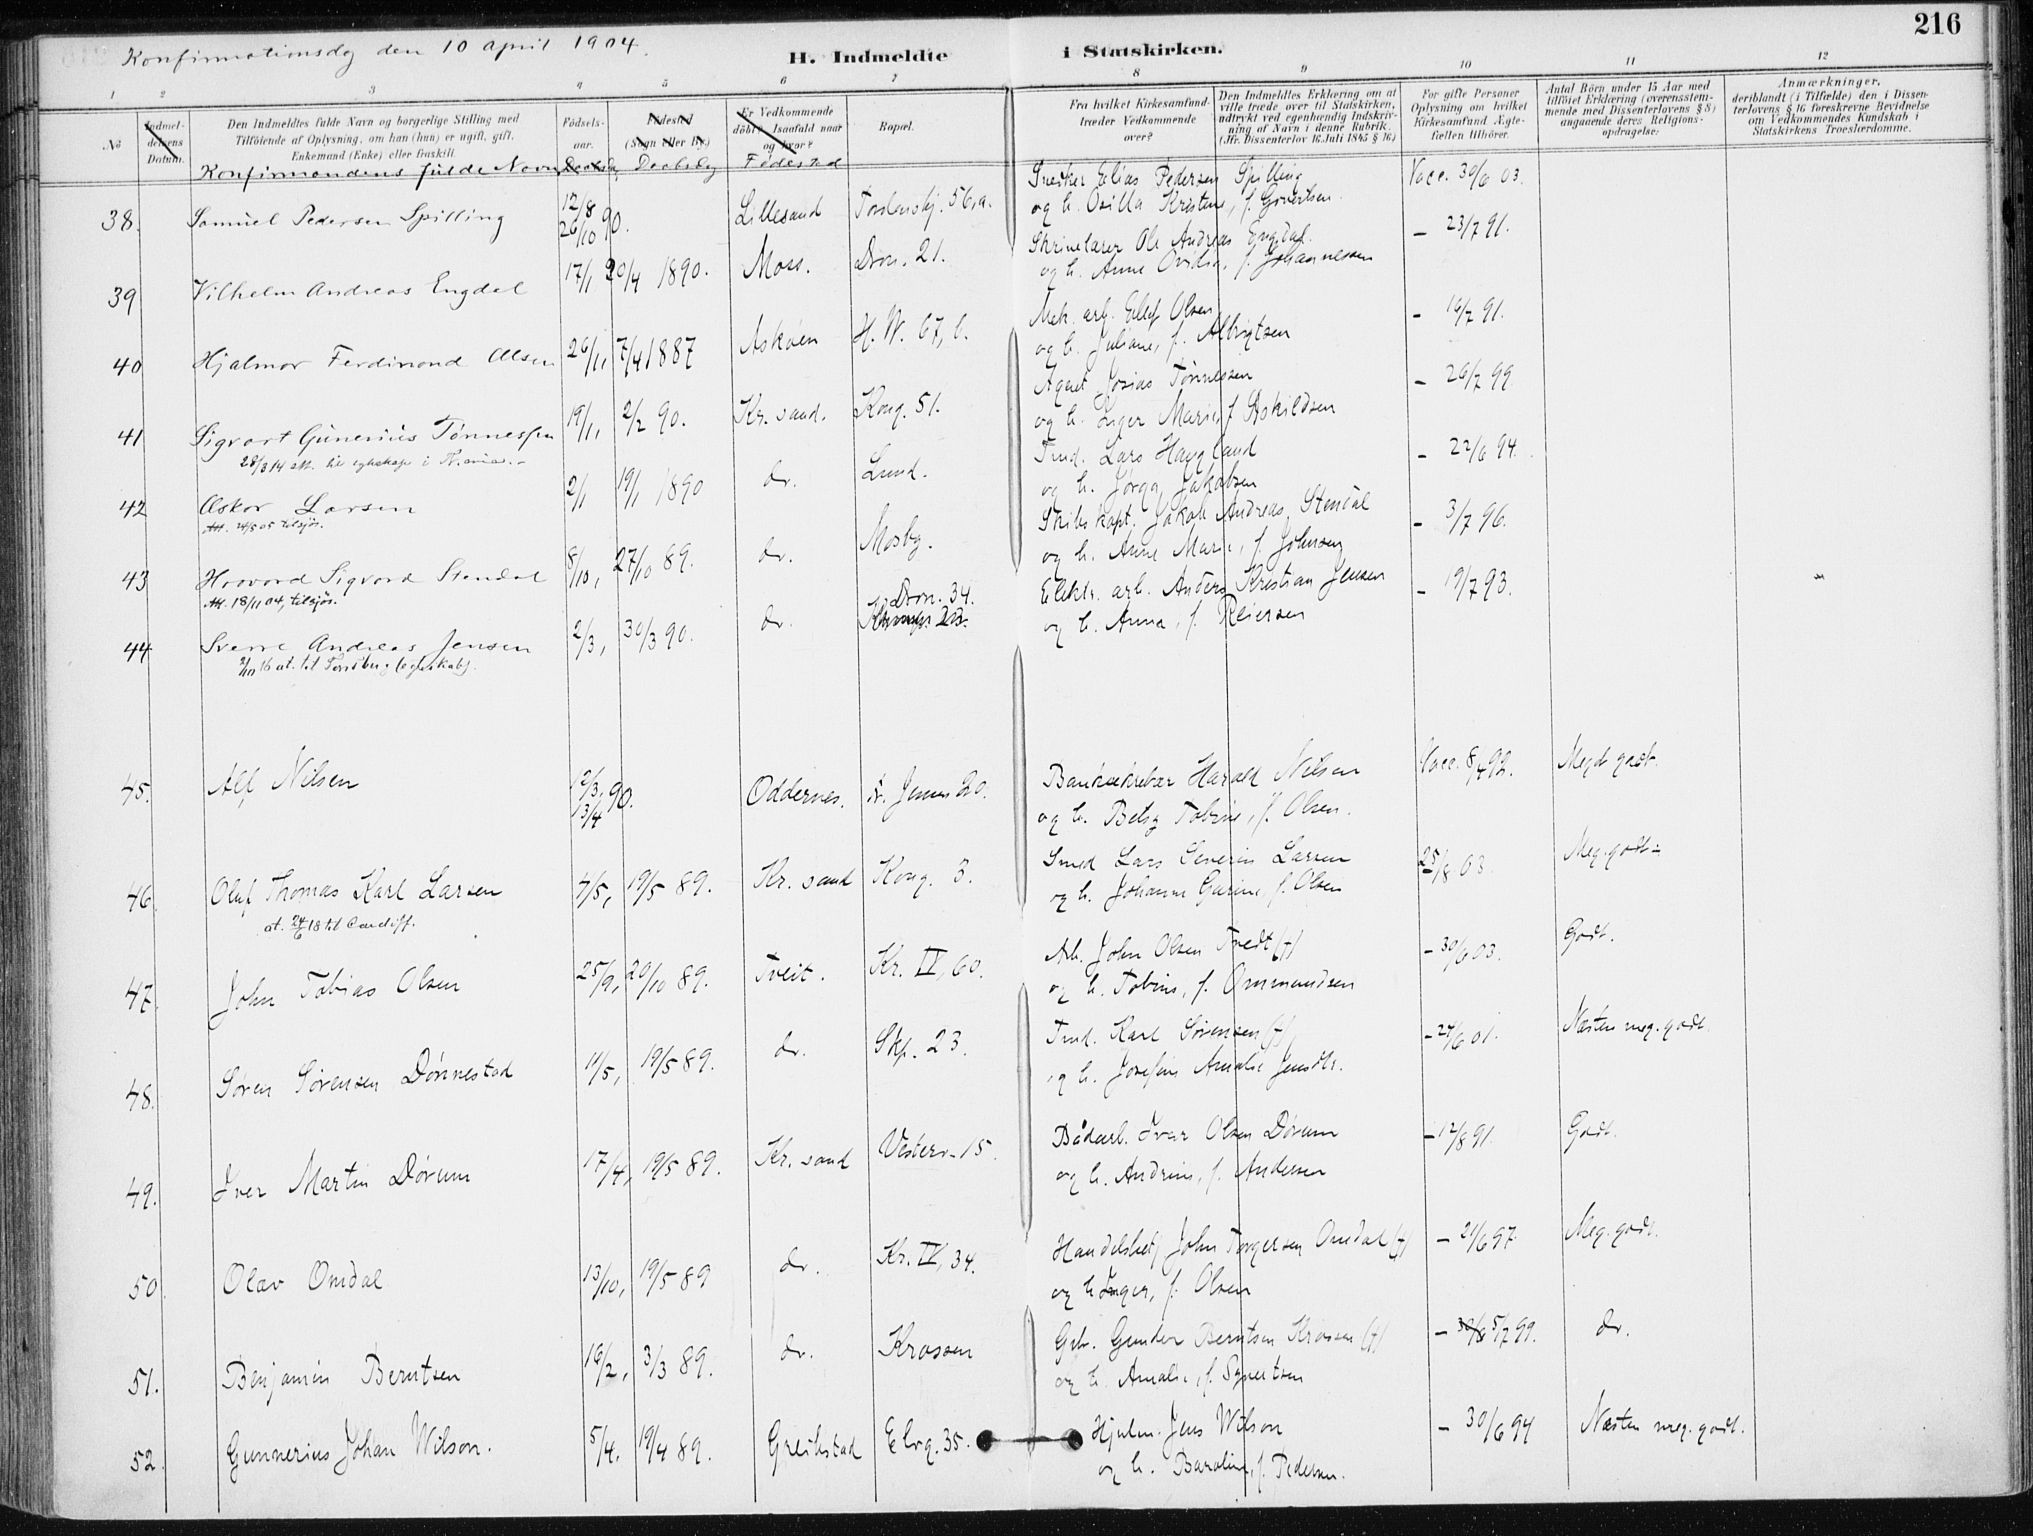 216
Konfirmationsdg den 10 april 1904.
H. Indmeldte i Statskirken.
1 2 3 4 5 6 7 8 9 10 11 12
No
Indmel-
delsens
Datum.
Den Indmeldtes fulde Navn og borgerlige Stilling med
Tilföiende af Oplysning, om han (hun) er ugift, gift,
Enkemand (Enke) eller fraskilt.
Födsels-
aar.
Födested
(Sogn eller By)
Er Vedkommende
döbt, i saafald naar
og hvor?
Bopæl.
Fra hvilket Kirkesamfund
træder Vedkommende
over?
Den Indmeldtes Erklæring om at
ville træde over til Statskirken,
udtrykt ved egenhændig Indskriv-
ning af Navn i denne Rubrik.
(Jfr. Dissenterlov 16. Juli 1845 § 16)
For gifte Personer
Oplysning om hvilket
Kirkesamfund Ægte-
fællen tilhörer.
Antal Börn under 15 Aar med
tilföiet Erklæring (overensstem-
mende med Dissenterlovens § 8)
angaaende deres Religions-
opdragelse:
Anmærkninger,
deriblandt (i Tilfælde) den i Dissen-
terlovens § 16 foreskrevne Bevidnelse
om Vedkommendes Kundskab i
Statskirkens Troeslærdomme.
Konfirmandens fulde Navn Daabsdg Födested
38. Samuel Pedersen Spilling 12/8 26/10 90. Lillesand Tordenskj. 56, a. Snedker Elias Pedersen Spilling Vacc. 30/6 03.
og h. Osilla Kristine, f. Govertsen.
39 Vilhelm Andreas Engdal 17/1 20/4 1890. Moss. Dron. 21. Skrivelærer Ole Andreas Engdal. - 23/7 91.
og h. Anne Ovidia, f. Johannessen
40 Hjalmar Ferdinand Olsen 26/11, 7/4 1887 Askøen H. W. 67, b. Mek. arb. Ellef Olsen - 16/7 91.
og h. Juliane, f. Albrigtsen
41 Sigvart Gunerius Tönnessen 19/11, 2/2 90. Kr. sand. Kong. 51. Agent Josias Tönnessen - 26/7 99.
28/3 14 att. til egteskap i
og h. Inger Marie, f. Askildsen
42 Oskar Larsen 2/1 19/1 1890 do. Lund. Tmd. Lars Haugland - 22/6 94.
Att. 24/5 05 tilsjøs.
og h. Jörga, Jakobsen
43 Haavard Sigvard Stendal 8/10, 27/10 89. do. Mosby. Skibskapt. Jakob Andreas Stendal - 3/7 96.
Att. 18/11 04, tilsjøs.
og h. Anne Marie, f. Johnsen
44 Sverre Andreas Jensen 2/3, 30/3 90. do. Dron. 34. Elektr. arb. Anders Kristian Jensen - 19/7 93.
16 at. til Tønsberg (egteskab).
og h. Anna, f. Reiersen
45. Alf Nilsen 12/3, 13/4 90. Oddernes. Jensen 20. Banksekretær Harald Nilsen Vacc. 8/4 92. Meget godt.
og h. Betsy Tobine, f. Olsen.
46. Olaf Thomas Karl Larsen 4/5, 19/5 89. Kr. sand Kong. 3. Smed Lars Severin Larsen 25/8 03. Meg. godt
at. 24/6 18 til Cardiff.
og h. Johanne Gurine, f. Olsen
47. John Tobias Olsen 25/9, 20/10 89. Tveit. Kr. IV, 60. Arb. John Olsen Tvedt (†) - 30/6 03. Godt.
og h. Tobine, f. Ommundsen
48. Sören Sörensen Dönnestad 11/5, 19/5 89. do. Skp. 23. Tmd. Karl Sörensen (†), - 24/6 01. Næsten meg. godt.
og h. Josefine Amalie Jensdtr.
49. Iver Martin Dörum 17/4, 19/5 89. Kr. sand Vesterv. 15. Bådarb. Ivar Olsen Dörum - 12/8 91. Godt.
og h. Andrine, f. Andersen
50 Olav Omdal 13/10, 19/5 89 do. Kr. IV, 34. Handelsbetj John Torgersen Omdal (†) - 21/6 97. Meg. godt.
og h. Inger, f. Olsen
51. Benjamin Berntsen 16/2, 3/3 89. do. Krossen Gbr. Gunder Berntsen Krossen (†) - 30/6 5/7 99. do.
og h. Amalie, f. Syvertsen
52. Gunnerius Johan Wilson. 5/4. 19/4 89. Greibstad Elvg. 35. Hjulm. Jens Wilson - 30/6 94 Næsten meg. godt.
og h. Baroline, f. Pedersen.